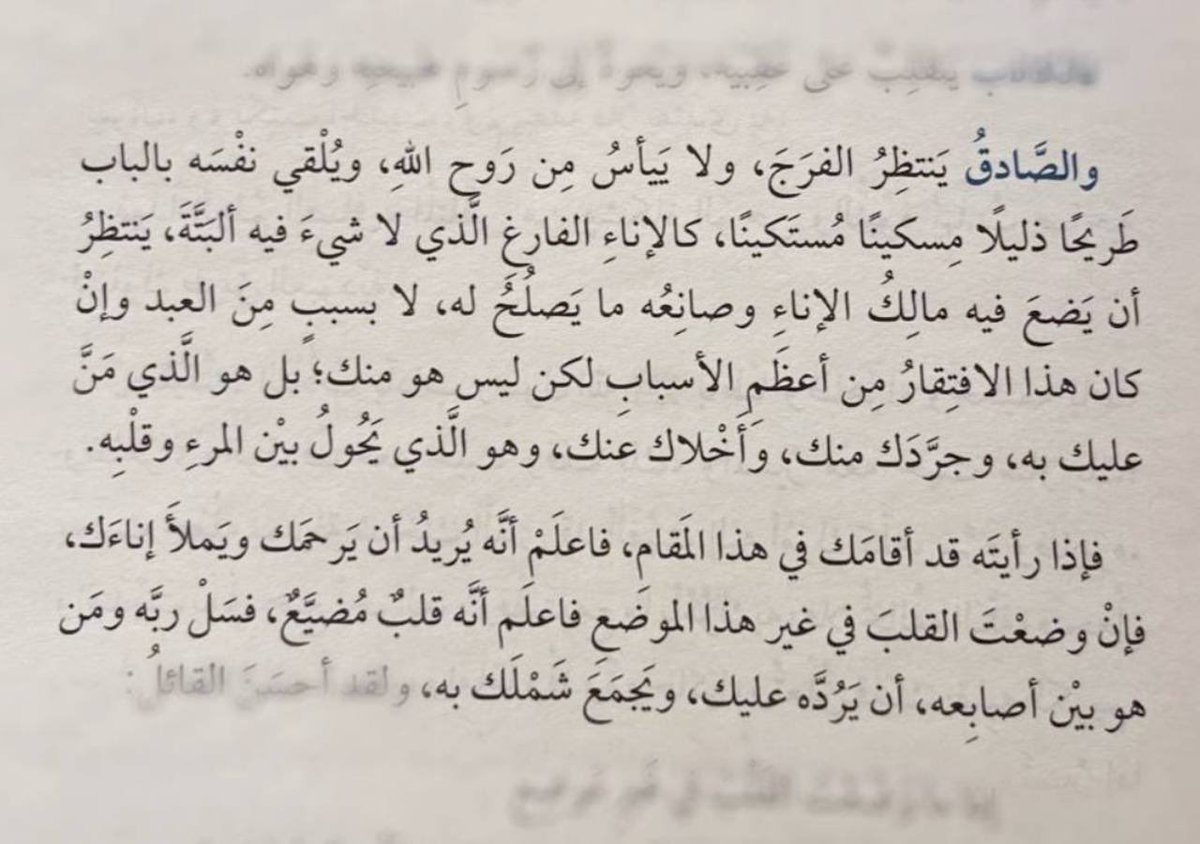 ينقلب على عقبيه، ويعود إلى رسوم طبيعته وهواه.
والصَّادقُ يَنتظِرُ الفرَجَ، ولا يَيأسُ مِن رَوحِ اللهِ، ويُلْقي نفْسَه بالباب
طَريحًا ذليلًا مِسكينًا مُستَكينًا، كالإناءِ الفارغِ الَّذي لا شيءَ فيه ألبَتَّةَ، يَنتظِرُ
أن يَضعَ فيه مالِكُ الإناءِ وصانِعُه ما يَصلُحُ له، لا بسببٍ مِنَ العبد وإنْ
كان هذا الافتِقارُ مِن أعظَمِ الأسبابِ لكن ليس هو منك؛ بل هو الَّذي مَنَّ
عليك به، وجرَّدَك منك، وَأَخْلاك عنك، وهو الَّذي يَحُولُ بيْن المرءِ وقلْبِه.
فإذا رأيتَه قد أقامَك في هذا المَقام، فاعلَمْ أنَّه يُريدُ أن يَرحمَك ويَملأَ إناءَك،
فإنْ وضعْتَ القلبَ في غير هذا الموضَعِ فاعلَم أنَّه قلبٌ مُضيَّعٌ، فسَلْ ربَّه ومَن
هو بيْن أصابِعه، أن يَرُدَّه عليك، ويَجمَعَ شَمْلَك به، ولقد أحسَنَ القائلُ:
إذا ما وضعت القلب في غير موضع